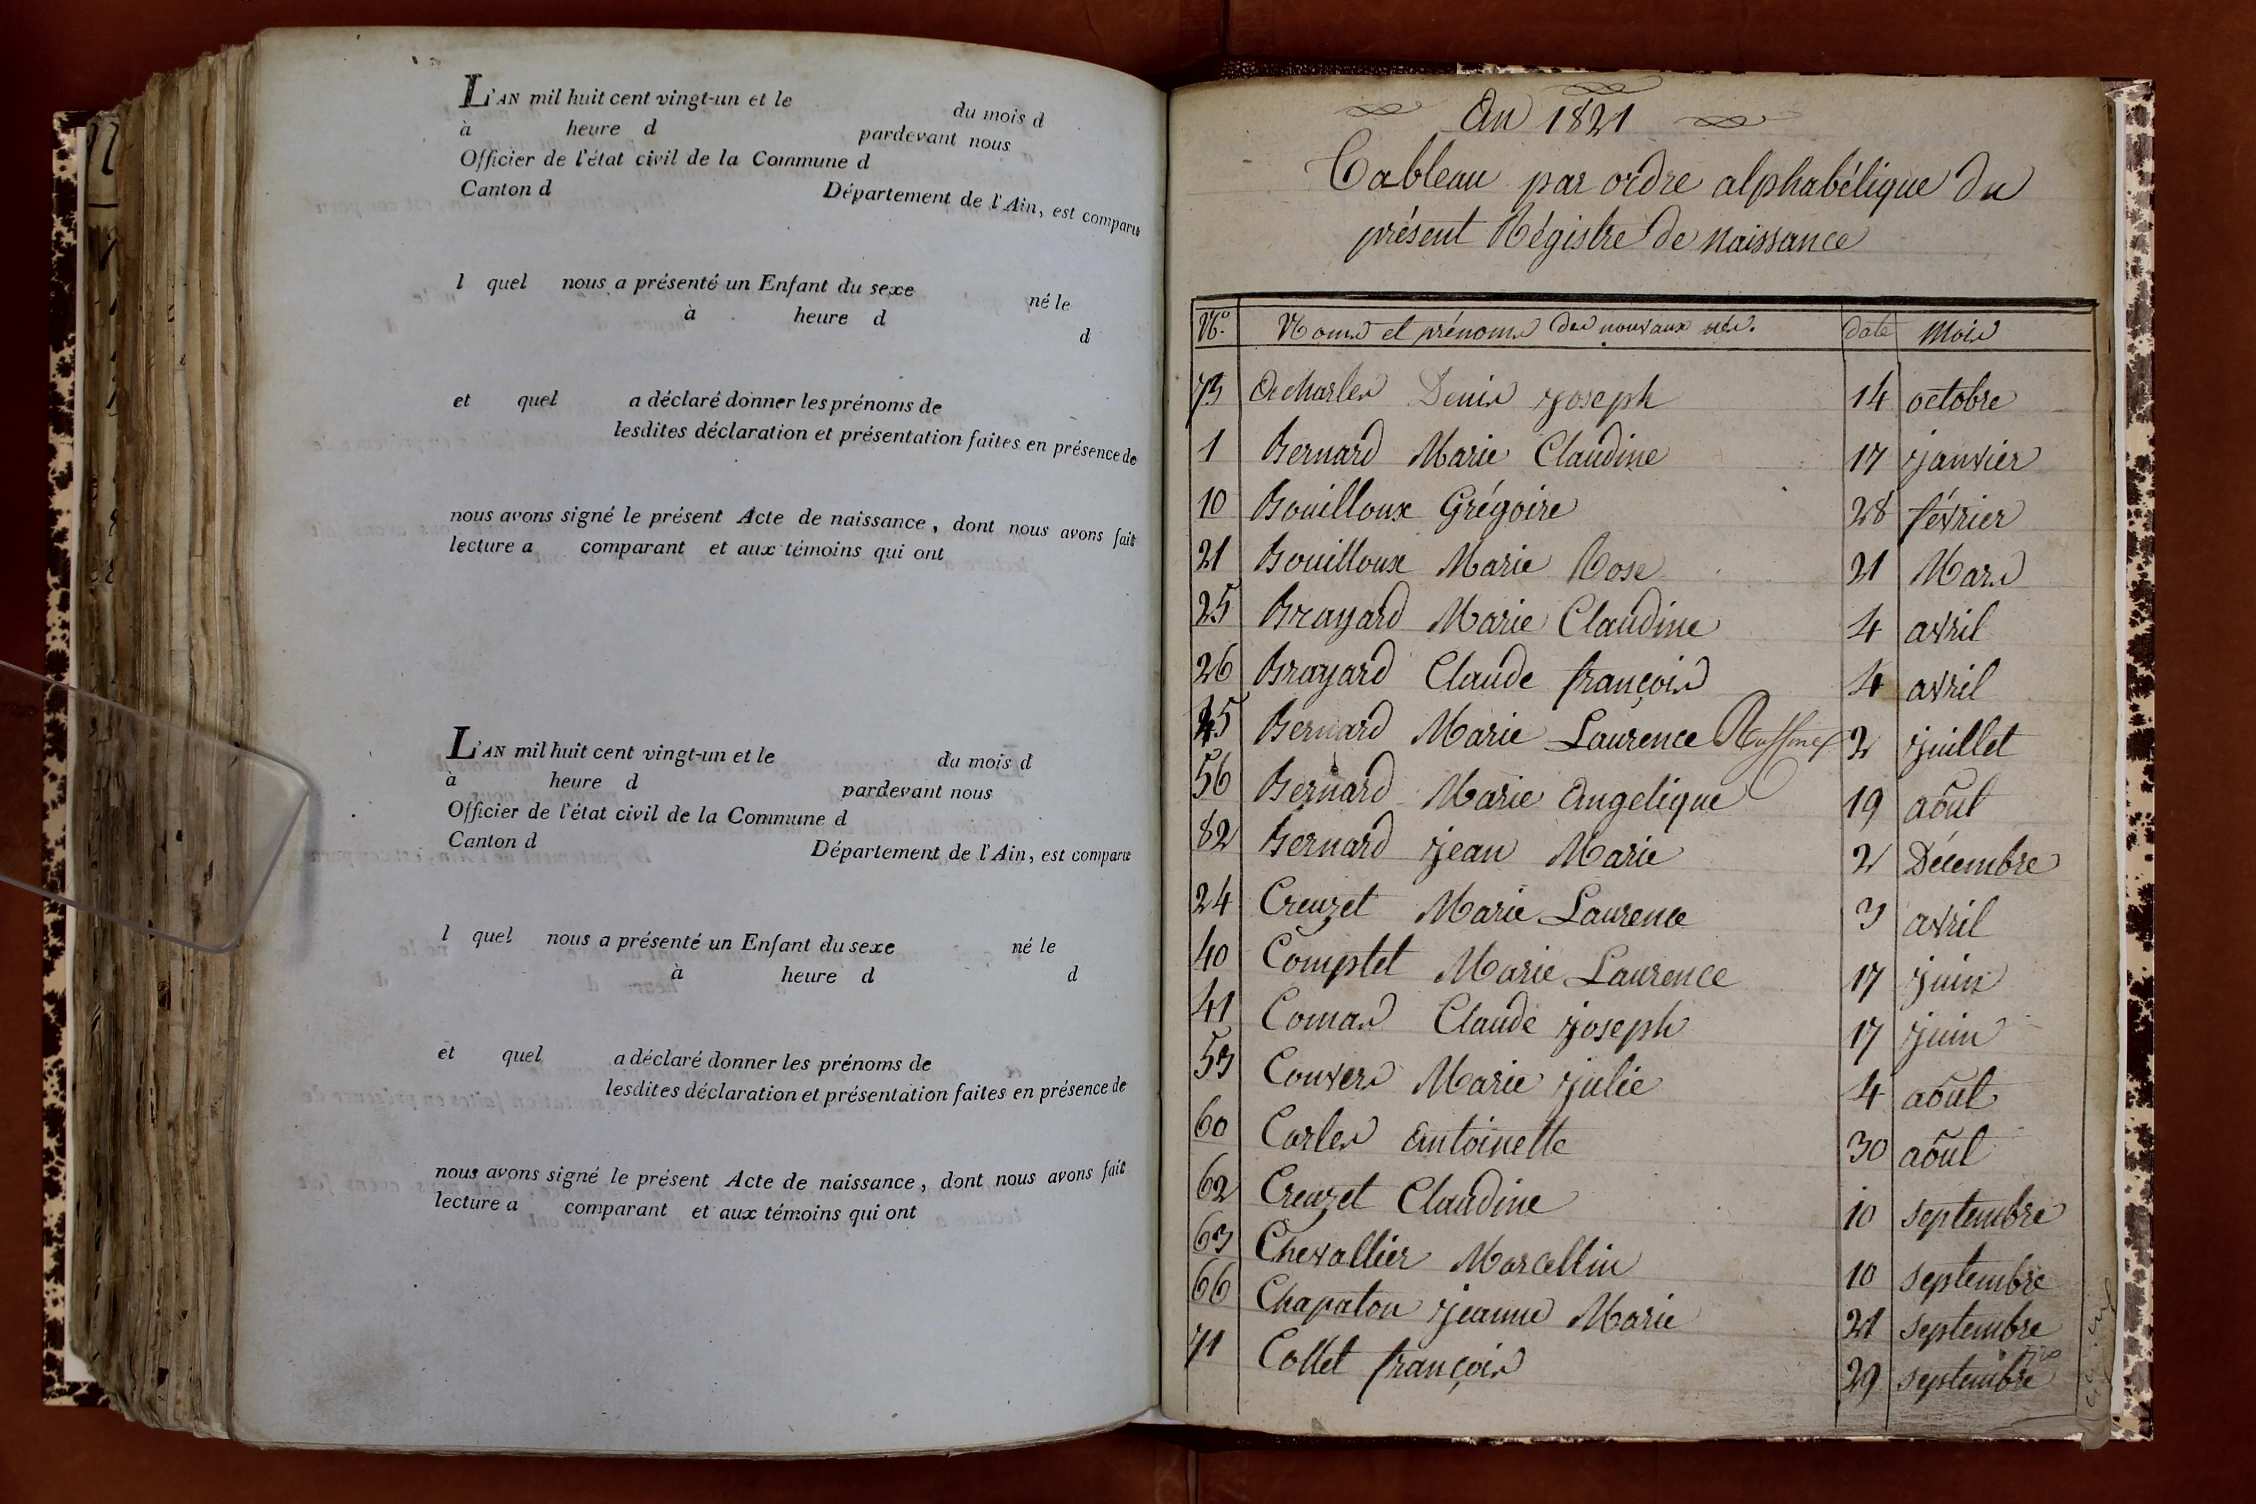 L'AN mil huit cent vingt-un et le du mois d
à heure d pardevant nous
Officier de l'état civil de la Commune d
Canton d Département de l'Ain, est comparu
l quel nous a présenté un Enfant du sexe né le
à heure d d
et quel a déclaré donner les prénoms de
lesdites déclaration et présentation faites en présence de
nous avons signé le présent Acte de naissance, dont nous avons fait
lecture a comparant et aux témoins qui ont
L'AN mil huit cent vingt-un et le du mois d
à heure d pardevant nous
Officier de l'état civil de la Commune d
Canton d Département de l'Ain, est comparu
l quel nous a présenté un Enfant du sexe né le
à heure d d
et quel a déclaré donner les prénoms de
lesdites déclaration et présentation faites en présence de
nous avons signé le présent Acte de naissance, dont nous avons fait
lecture a comparant et aux témoins qui ont
An 1821
Tableau par ordre alphabétique du
présent Régistre de naissance
N.o Noms et prénoms des nouvaux nés. date Mois
73 Acharles Denis joseph 14 octobre
1 Bernard Marie Claudine 17 janvier
10 Bouilloux Grégoire 28 février
21 Bouilloux Marie Rose 21 Mars
25 Brayard Marie Claudine 4 avril
26 Brayard Claude françois 4 avril
45 Bernard Marie Laurence 2 juillet
56 Bernard Marie Angelique 19 août
82 Bernard jean Marie 2 Décembre
24 Creuzet Marie Laurence 3 avril
40 Comptet Marie Laurence 17 juin
41 Comas Claude joseph 17 juin
53 Convers Marie julie 4 août
60 Carles Antoinette 30 août
62 Creuzet Claudine 10 septembre
63 Chevallier Marcellin 10 septembre
66 Chapaton jeanne Marie 21 septembre
71 Collet françois 29 septembre